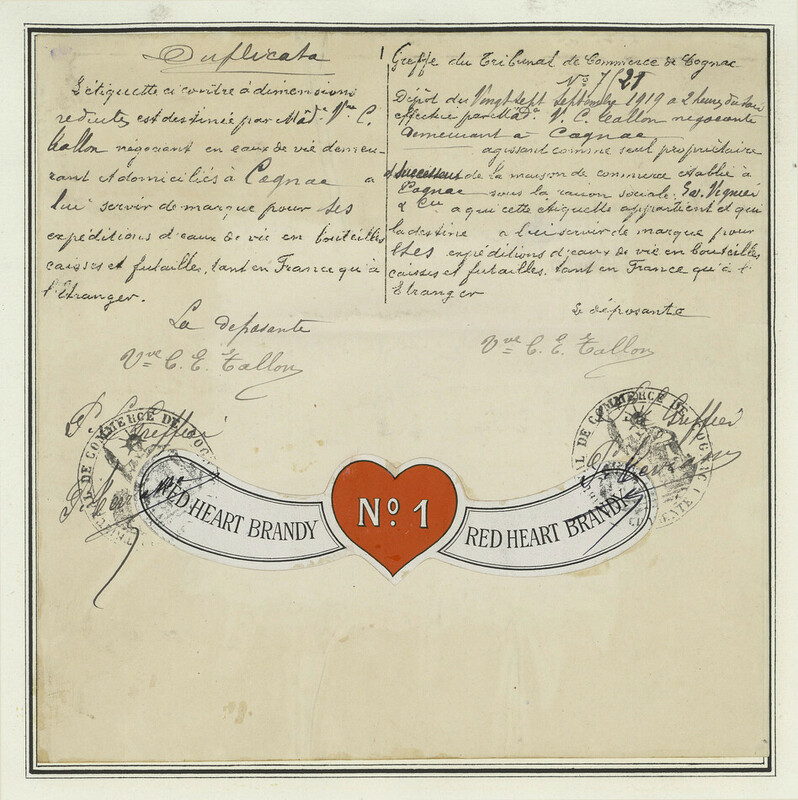 Duplicata
L'étiquette ci contre à dimensions
réduites est destinée par Made Vve C.
Tallon négociant en eaux de vie demeu-
rant et domiciliés à Cognac a
lui servir de marque pour ses
expéditions d'eaux de vie en bouteilles
caisses et futailles, tant en France qu'à
l'Etranger.
La déposante
Vve C. E. Tallon
Greffe du Tribunal de Commerce de Cognac
No 7/21
Dépôt du Vingt sept Septembre 1919 a 2 heures du soir
effectué par Made V. C. Tallon négociante
demeurant à Cognac
agissant comme seul propriétaire
et successeur de la maison de commerce établie à
Cognac sous la raison sociale: Ed. Vignier
& Cie a qui cette étiquette appartient et qui
la destine a lui servir de marque pour
ses expéditions d'eaux de vie en bouteilles
caisses et futailles, tant en France qu'à l'
Etranger
La déposante
Vve C. E. Tallon
P. Le Greffier
Le Greffier
DE COMMERCE DE COGNAC
DE COMMERCE DE COGNAC
RED HEART BRANDY
No 1
RED HEART BRANDY